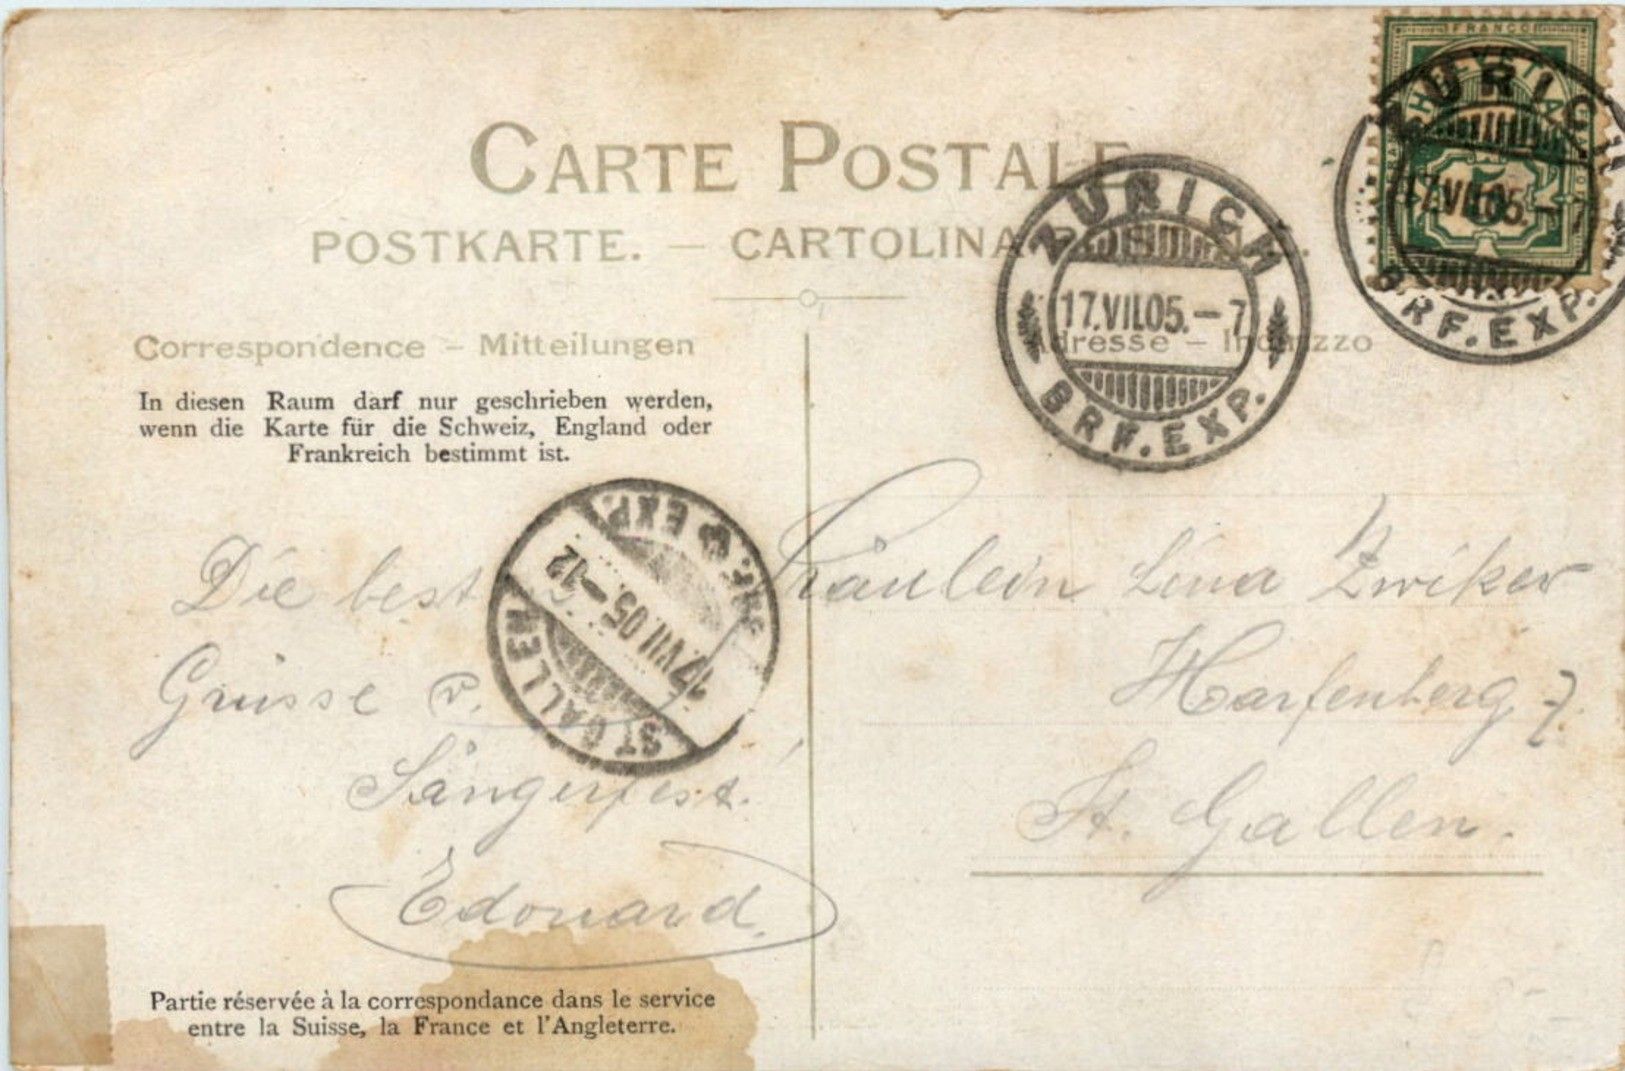 FRANCO
HELVETIA
5
ZÜRICH
17.VII.05.-7
BRF.EXP.
CARTE POSTALE
POSTKARTE. — CARTOLINA
ZÜRICH
17.VII.05.-7
BRF.EXP.
Correspondence – Mitteilungen
Adresse – Indirizzo
In diesen Raum darf nur geschrieben werden,
wenn die Karte für die Schweiz, England oder
Frankreich bestimmt ist.
ST. GALLEN
17.VII.05.-12
BRF. EXP.
Die best
Grüsse v.
Sängerfest.
Edouard.
Fräulein Lina Zwiker
Harfenberg 7.
St. Gallen.
Partie réservée à la correspondance dans le service
entre la Suisse, la France et l'Angleterre.